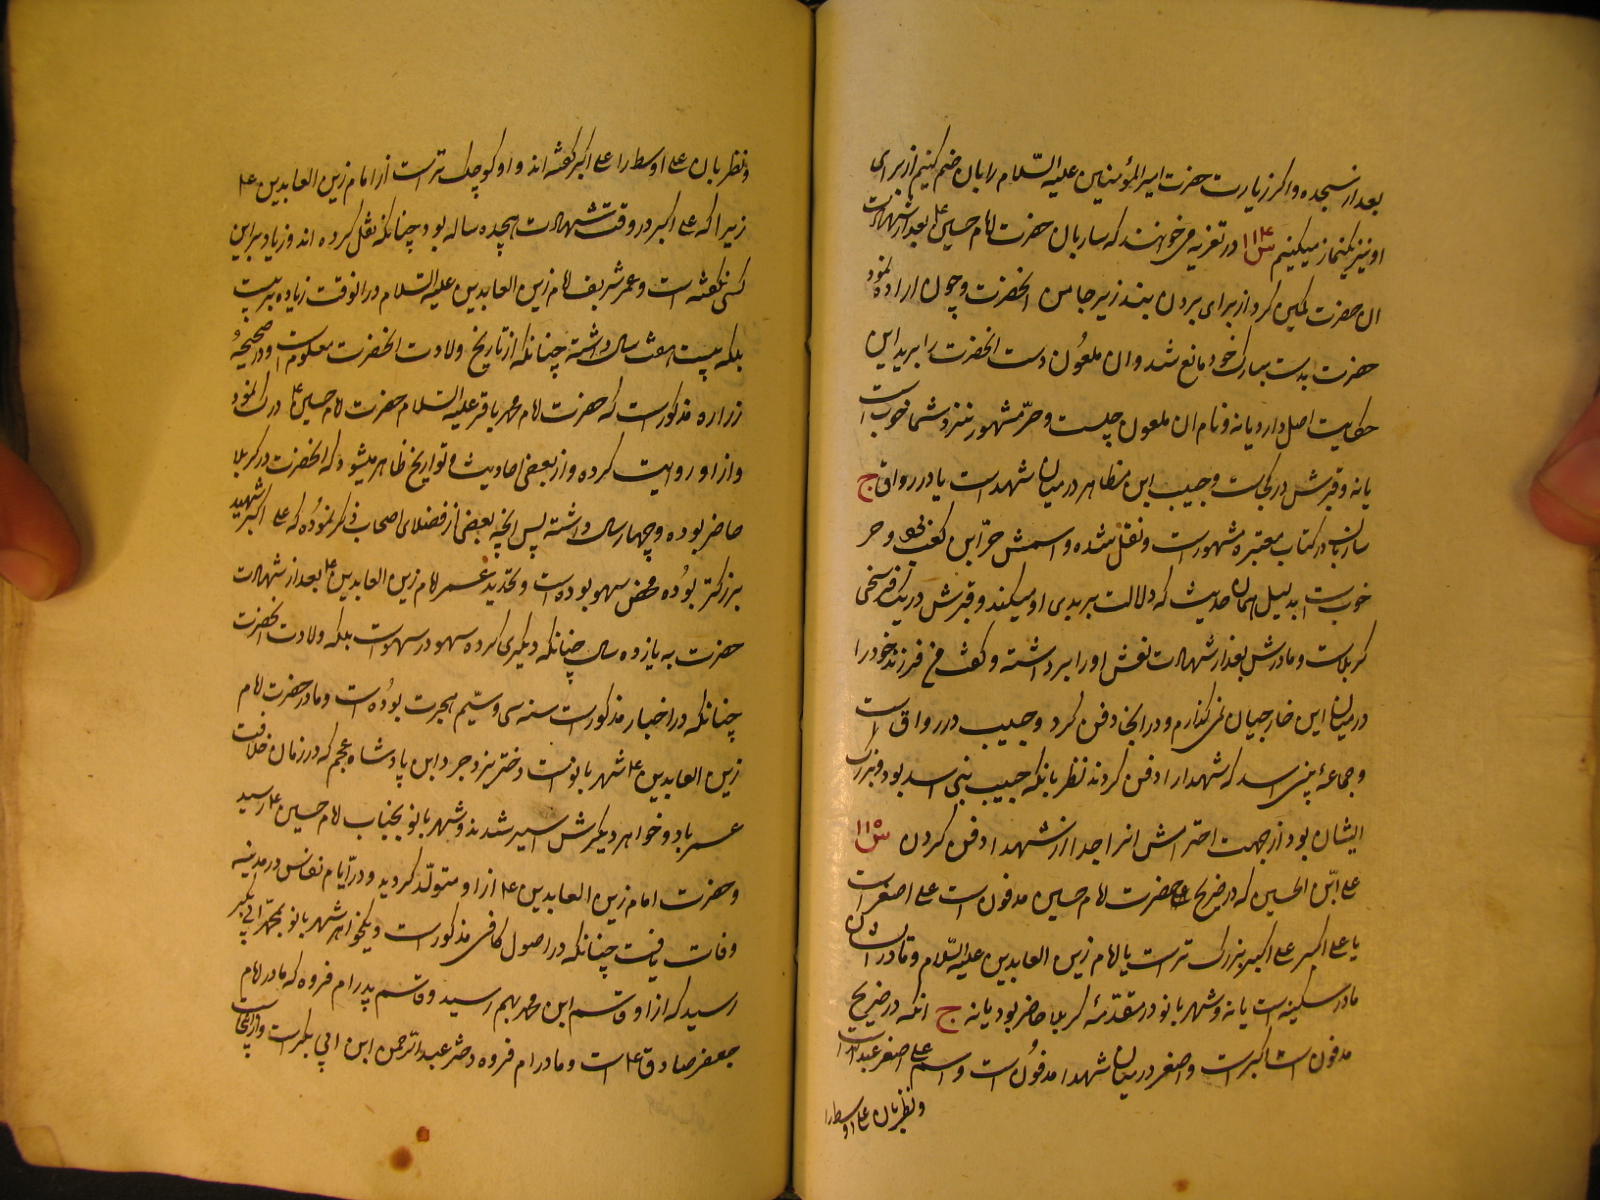 بعد از سجده و اکر زیارت حضرت امیر المؤمنین علیه السّلام را بان ضم کنیم از برای
او نیز یکنماز میکنیم س ۱۱۴ در تعزیه میخوانند که ساربان حضرت امام حسین ع بعد از شهادت
ان حضرت کمین کرد از برای بردن بند زیر جامه الحضرت و چون اراده نمود
حضرت بدست مبارک خود مانع شد و ان ملعون دست الحضرت را برید این
حکایت اصل دارد یا نه و نام ان ملعون چیست و حرّ مشهور نزد شما خوب است
یا نه و قبرش در کجاست و حبیب ابن مظاهر در میان شهداست یا در رواق ج
ساربان در کتاب معتبره مشهور است و نقل شده و اسمش حرّ ابن کعب و حر
خوب است بدلیل همان حدیث که دلالت ببریدی او میکند و قبرش در یک فرسخی
کربلاست و مادرش بعد از شهادت نعش او را برداشته و کفت من فرزند خود را
در میان این خارجیان نمی کذارم و در انجا دفن کرد و حبیب در رواق است
و جماعهٔ بنی اسد که شهدا را دفن کردند نظر بانکه حبیب بنی اسد بود و بزرک
ایشان بود از جهت احترامش انرا جدا از شهدا دفن کردن س ۱۱۵
علی ابن الحسین که در ضریح حضرت امام حسین مدفون است علی اصغر است
یا علی اکبر علی اکبر بزرک تر است یا امام زین العابدین علیه السّلام و مادرشان
مادر سکینه است یا نه و شهربانو در مقدّمهٔ کربلا حاضر بود یا نه ج انکه در ضریح
مدفون است اکبر است و اصغر در میان شهدا مدفون است و اسم علی اصغر عبدالله است
و نظر بان علی اوسط را
و نظر بان علی اوسط را علی اکبر کفته اند و او کوچک تر است از امام زین العابدین ع
زیرا که علی اکبر در وقت شهادت هیجده ساله بود چنانکه نقل کرده اند و زیاد بر این
کسی نکفته است و عمر شریف امام زین العابدین علیه السّلام در انوقت زیاده بر بیست
بلکه بیست و هفت سال داشته چنانکه از تاریخ ولادت الحضرت معلوم است و در صحیحهٔ
زراره مذکور است که حضرت امام محمد باقر علیه السّلام حضرت امام حسین ع درک نمود
و از او روایت کرده و از بعضی احادیث و تواریخ ظاهر میشود که الحضرت در کربلا
حاضر بوده و چهار سال داشته پس انچه بعضی از فضلای اصحاب ذکر نموده که علی اکبر شهید
بزرکتر بوده محض سهو بوده است و تحدید عمر امام زین العابدین ع بعد از شهادت
حضرت به یازده سال چنانکه دیکری کرده سهو در سهو است بلکه ولادت الحضرت
چنانکه در اخبار مذکور است سنه سی و سیّم هجرت بوده است و مادر حضرت امام
زین العابدین ع شهربانو است دختر یزدجرد ابن پادشاه عجم که در زمان خلافت
عمر با دو خواهر دیکرش اسیر شدند و شهربانو بجناب امام حسین ع رسید
و حضرت امام زین العابدین ع از او متولّد کردید و در ایّام نفاس در مدینه
وفات یافت چنانکه در اصول کافی مذکور است و یکخواهر شهربانو بمحمّد ابی بکر
رسید که از او قاسم ابن محمد بهم رسید و قاسم پدر ام فروه که مادر امام
جعفر صادق ع است و مادر ام فروه دختر عبد الرّحمن ابن ابی بکر است و از اینجاست